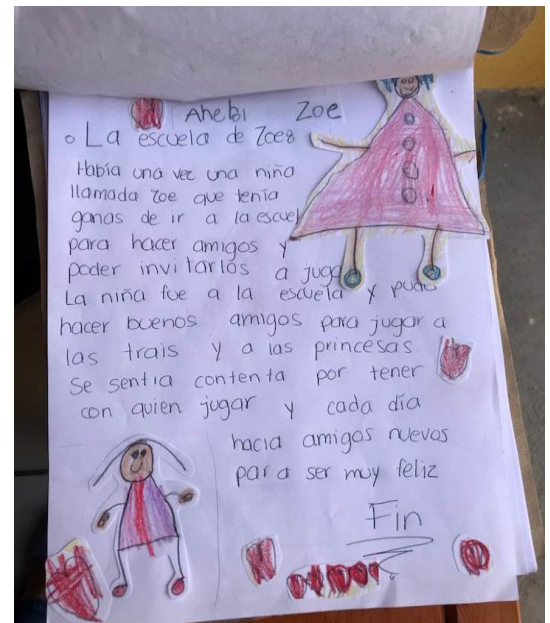 Ahebi Zoe
La escuela de Zoe
Había una vez una niña
llamada Zoe que tenía
ganas de ir a la escuel
para hacer amigos y
poder invitarlos a juga
La niña fue a la escuela y pudo
hacer buenos amigos para jugar a
las trais y a las princesas.
Se sentia contenta por tener
con quien jugar y cada día
hacia amigos nuevos
para ser muy feliz
Fin